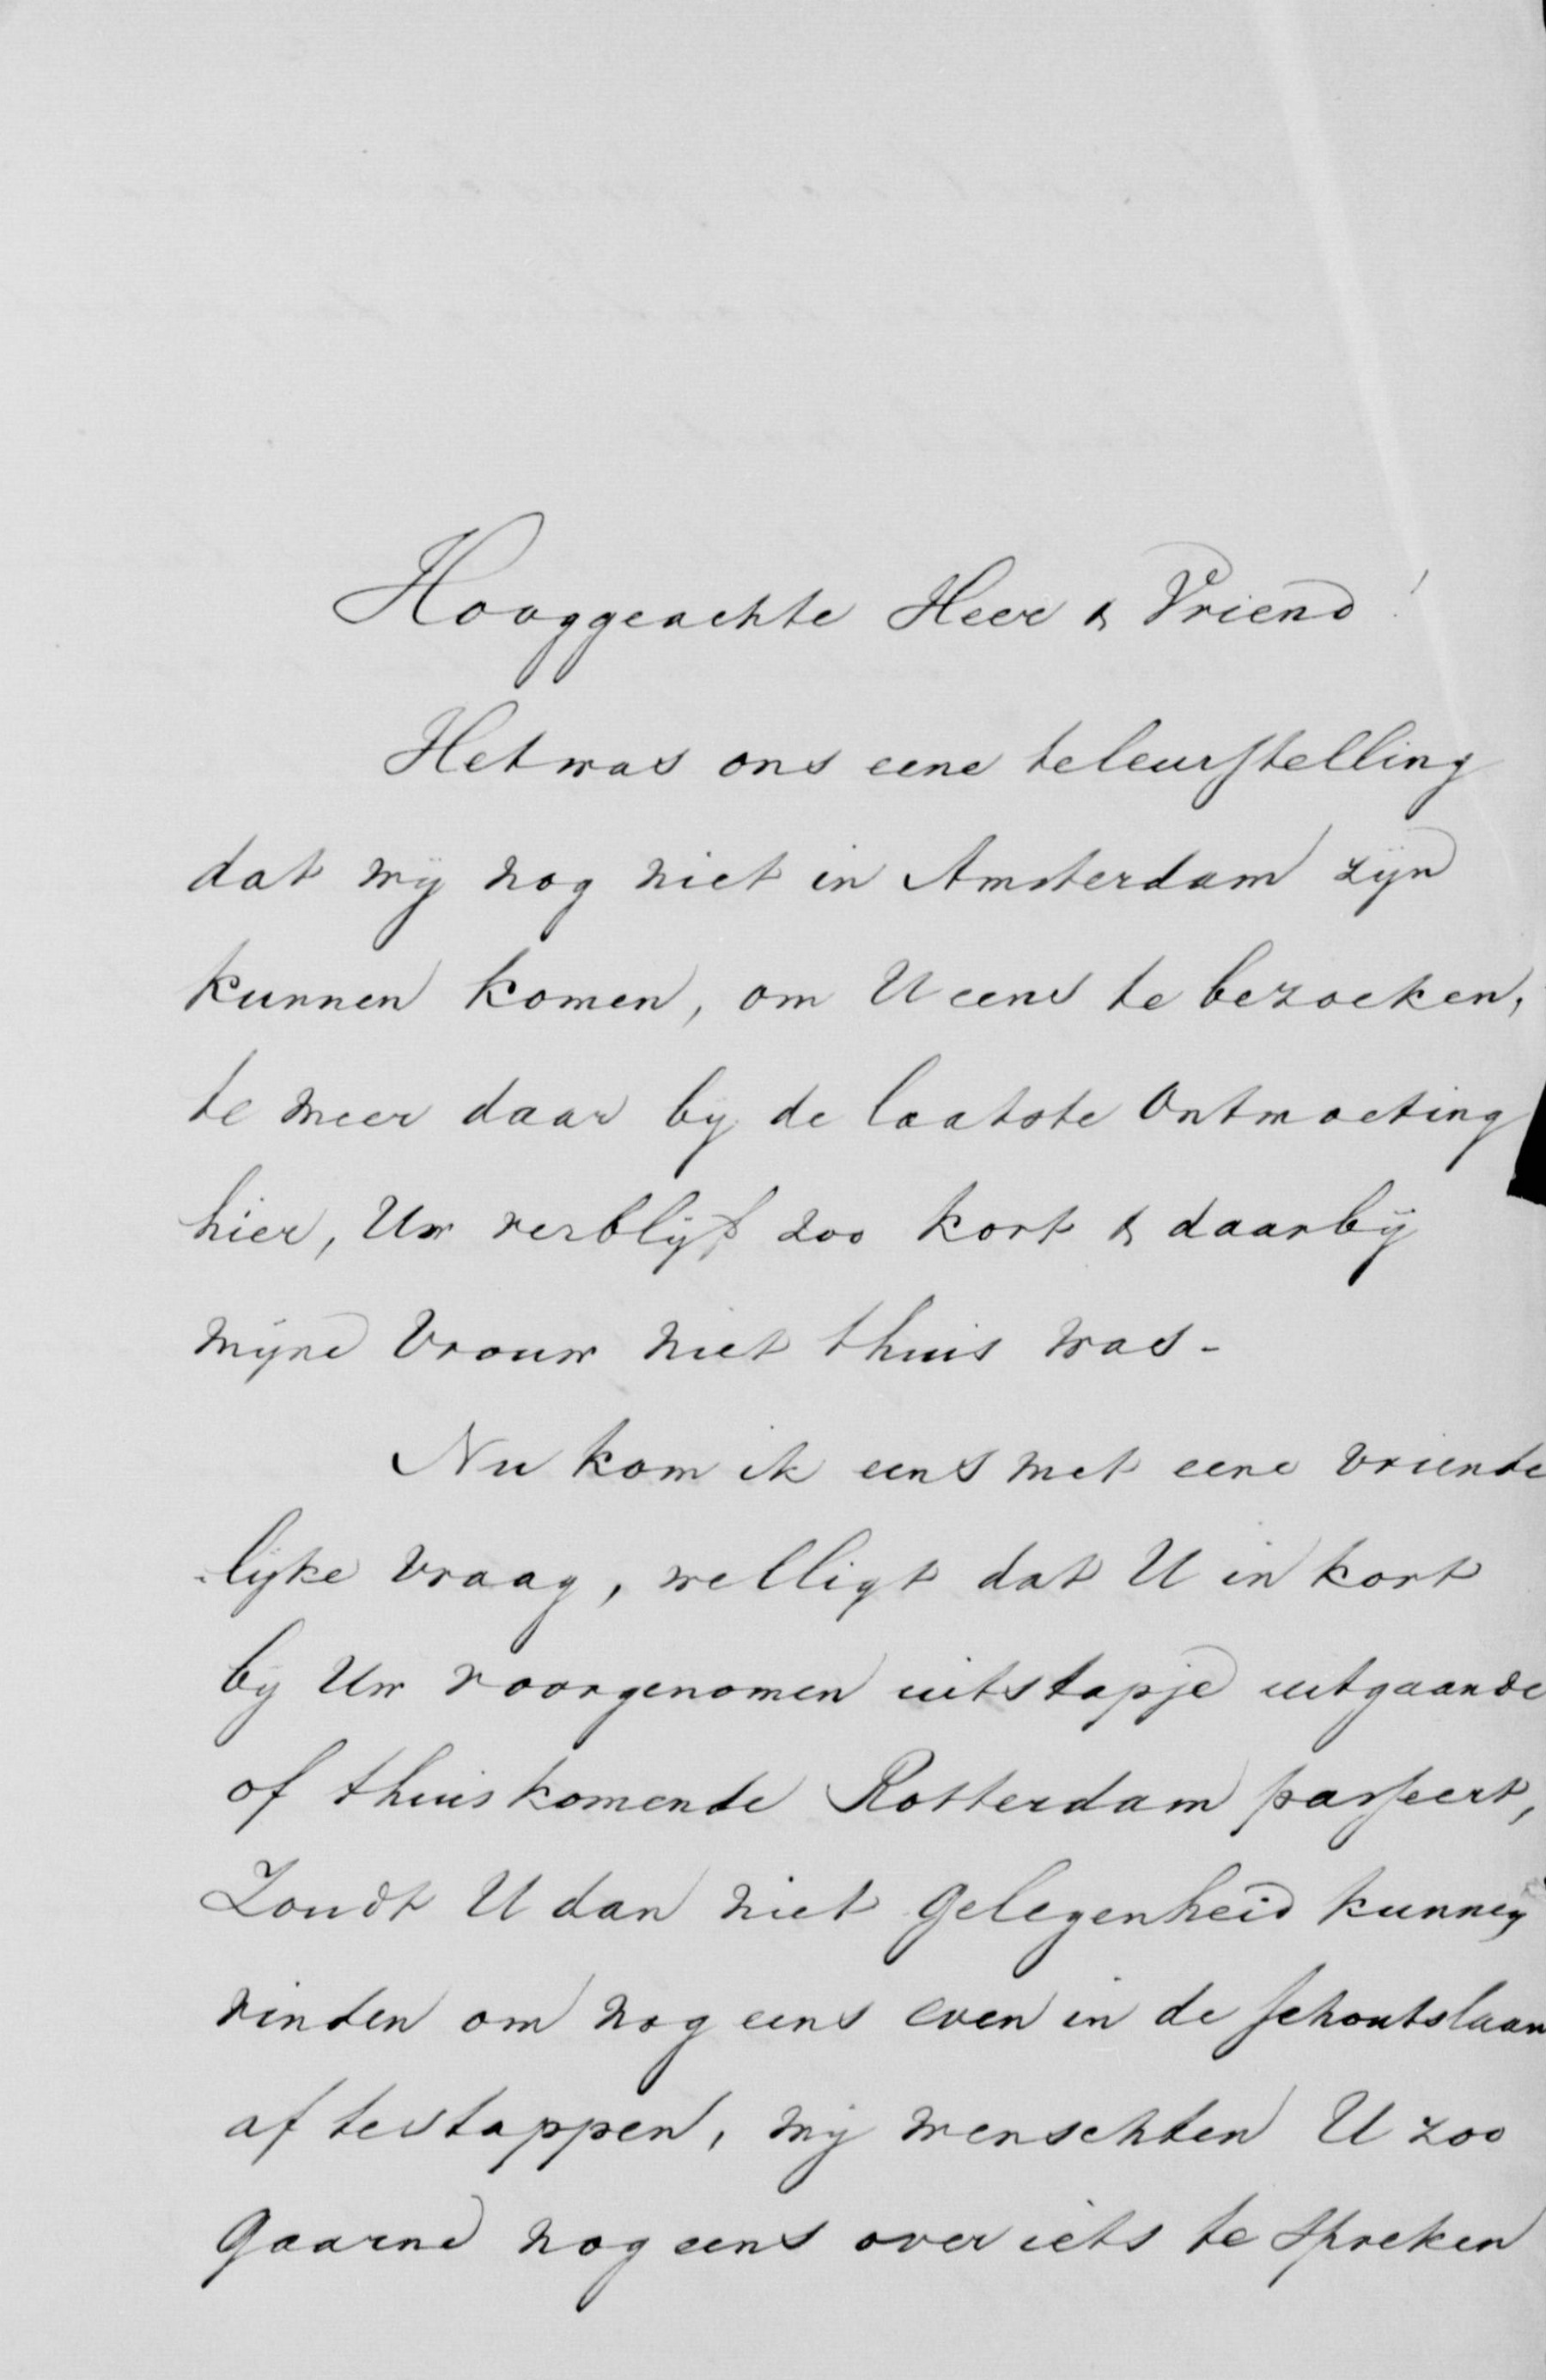 Hooggeachte Heer & Vriend!
Het was ons eene teleurstelling
dat wij nog niet in Amsterdam zijn
kunnen komen, om U eens te bezoeken,
te meer daar bij de laatste Ontmoeting
hier, Uw verblijf zoo kort & daarbij
mijne Vrouw niet thuis was.-
Nu kom ik eens met eene vriende
-lijke vraag, welligt dat U in kort
bij Uw voorgenomen uitstapje uitgaande
of thuiskomende Rotterdam passeert,
Zoudt U dan niet gelegenheid kunnen
vinden om nog eens even in de Schoutslaan
af testappen, wij wenschten U zoo
gaarne nog eens over iets te spreken